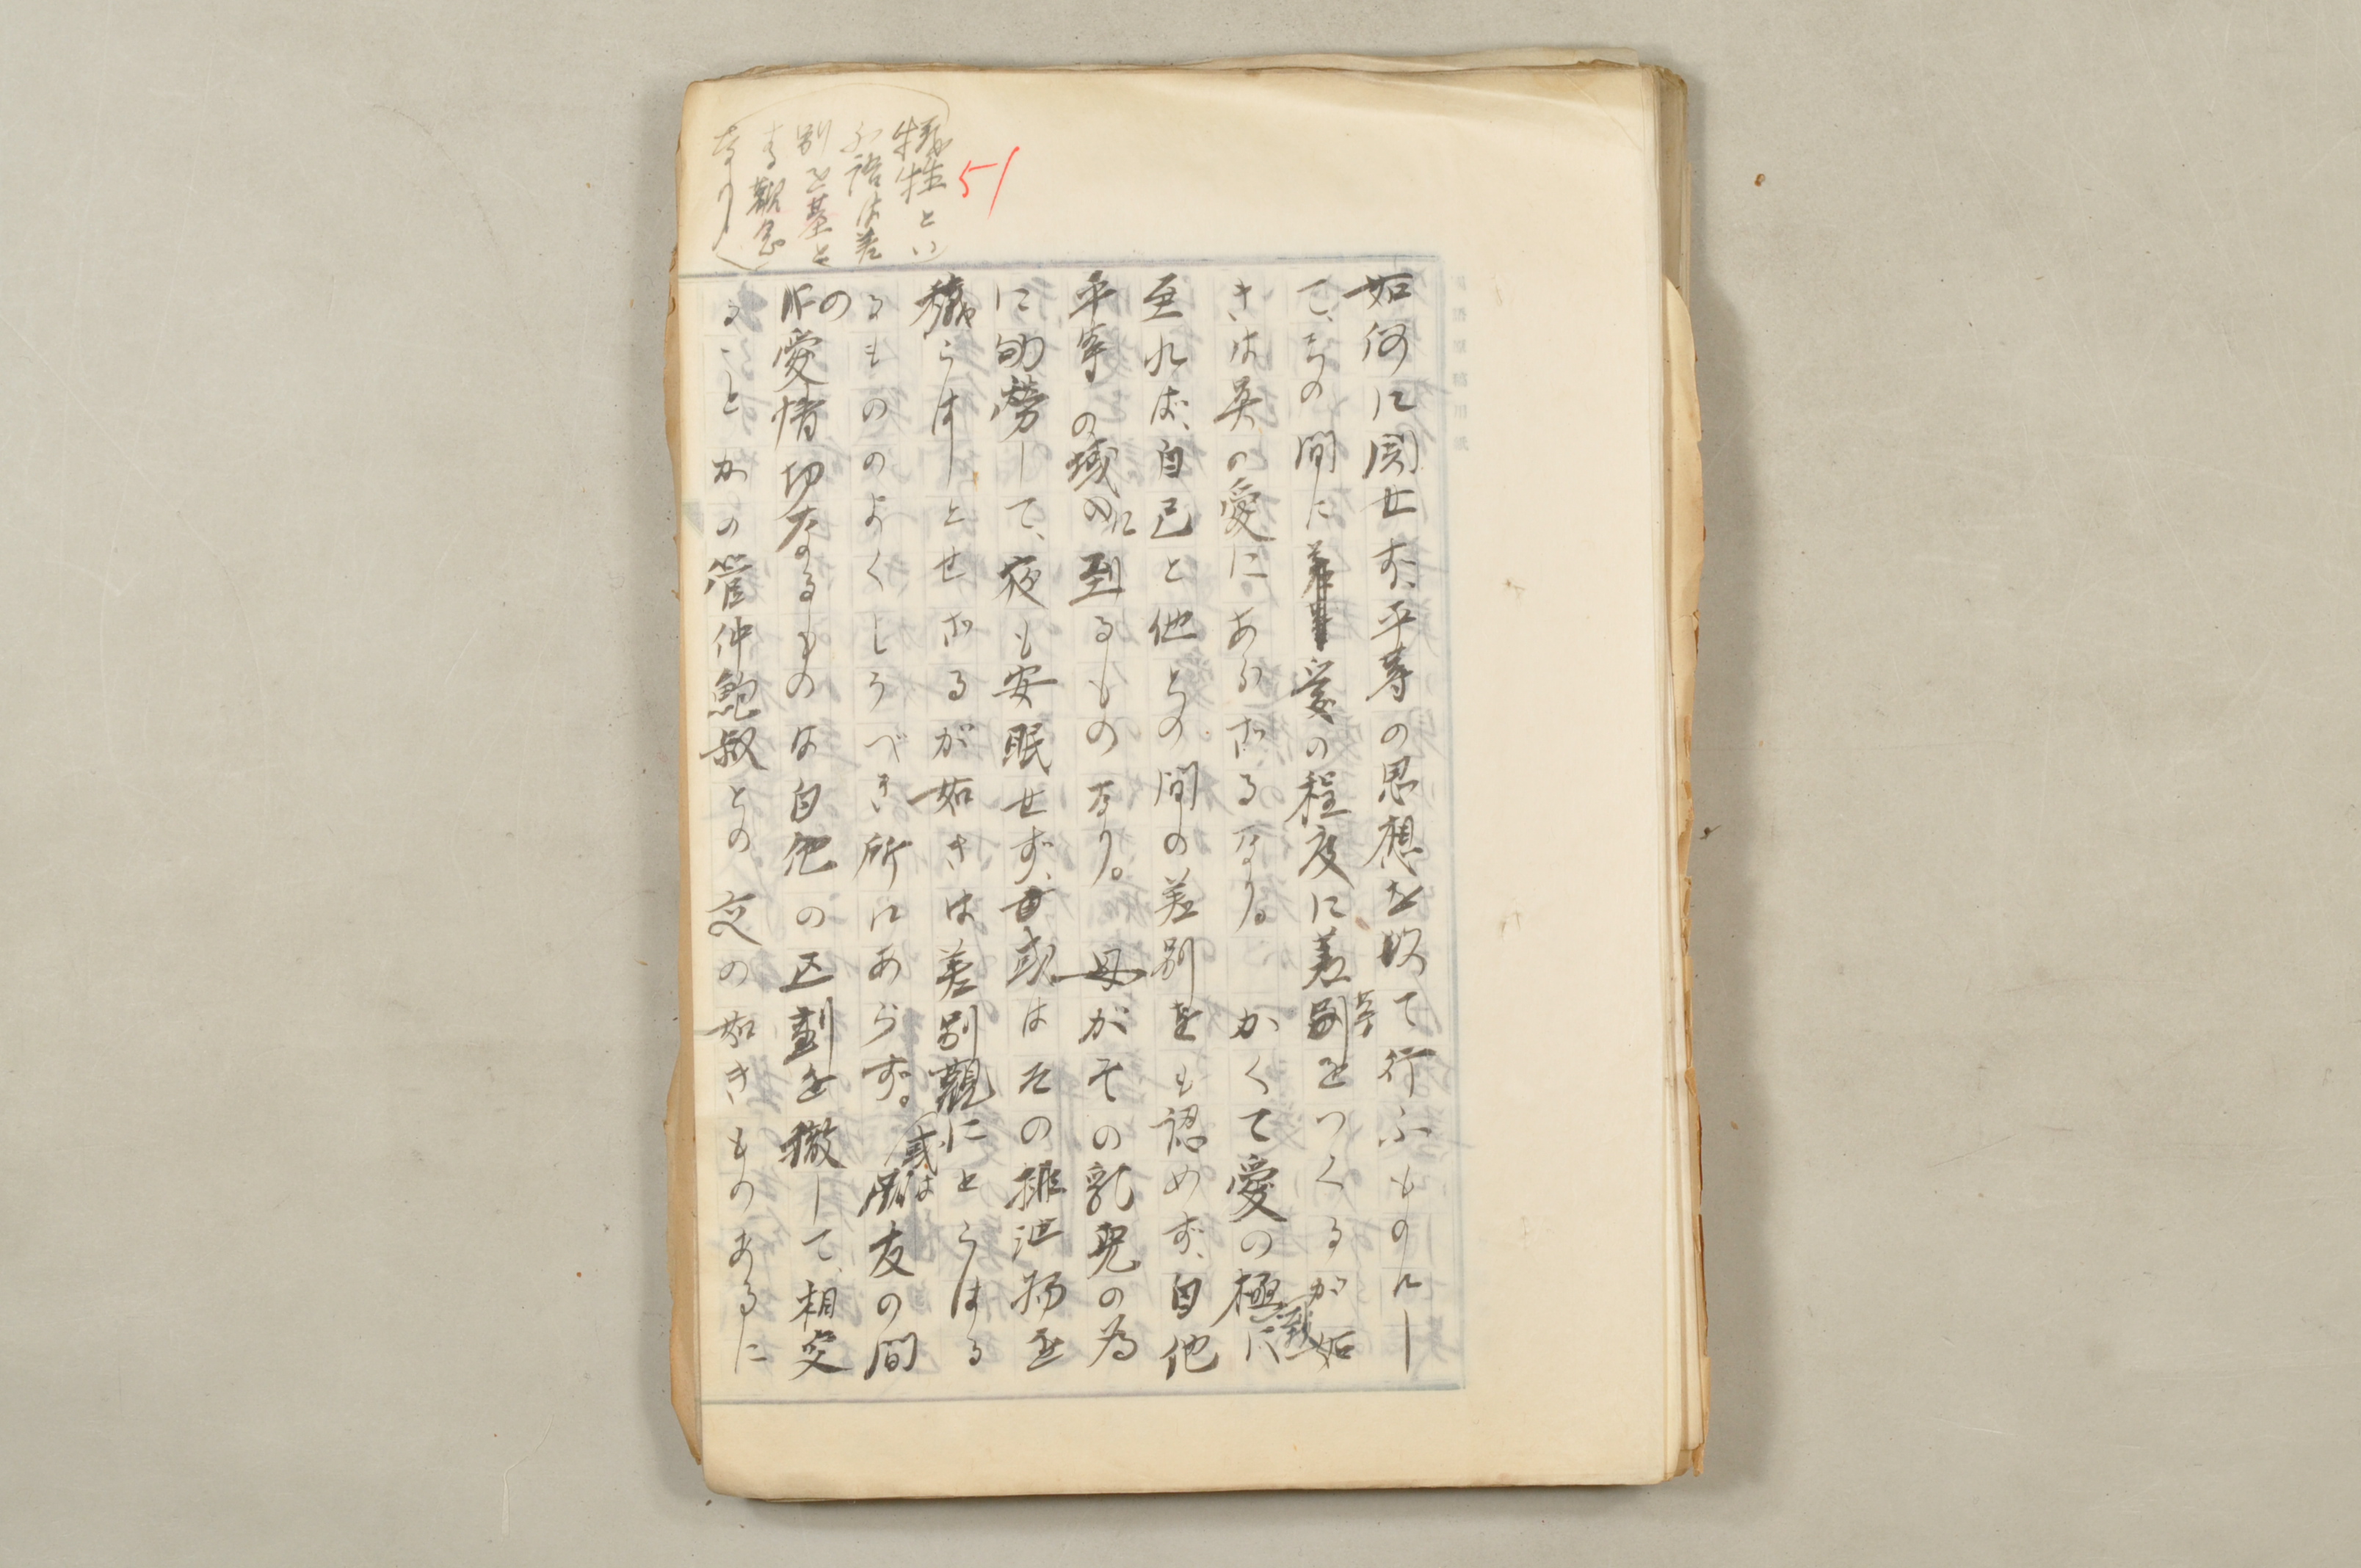 51
犠牲とい
ふ語は差
別を基と
する観念
なり
如何に関せず、平等の思想を以て行ふものにし
て、その間に愛の程度に差等をつくるが如
きは真の愛にあらざるなり。かくて愛の極に
至れば、自己と他との間の差別をも認めず、自他
平等の域に到るものなり。母がその乳児の為
に劬労して、夜も安眠せず、或はその排泄物を
穢らはしとせざるが如きは差別観にとらはる
るもののよくしうべき所にあらず。或は朋友の間
の愛情切なるものは自他の区劃を撤して、相交
ることかの管仲鮑叔との交の如きものあるに